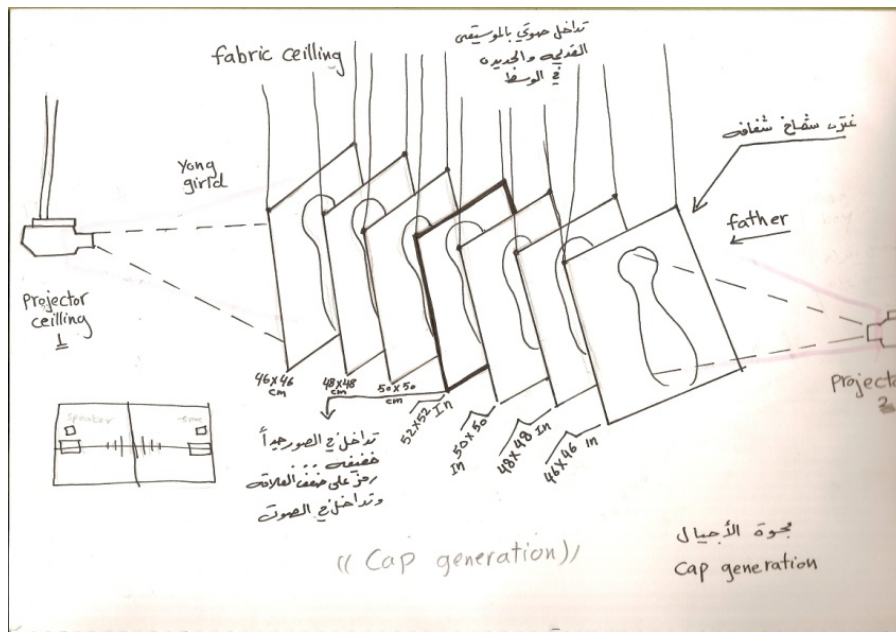 fabric ceilling
تداخل صوتي بالموسيقى
القديمه والجديده
في الوسط
شفافه
Yong
girld
father
projector
ceilling
1
Projecto
2
46x46
cm
48x48
cm
50x50
cm
52x52 In
50x50
In
48x48 In
46x46 in
speaker
تداخل في الصور جداً
خفيفه ..
رمز على ضعف العلاقه
وتداخل في الصوت
(( Cap generation))
فجوة الأجيال
Cap generation